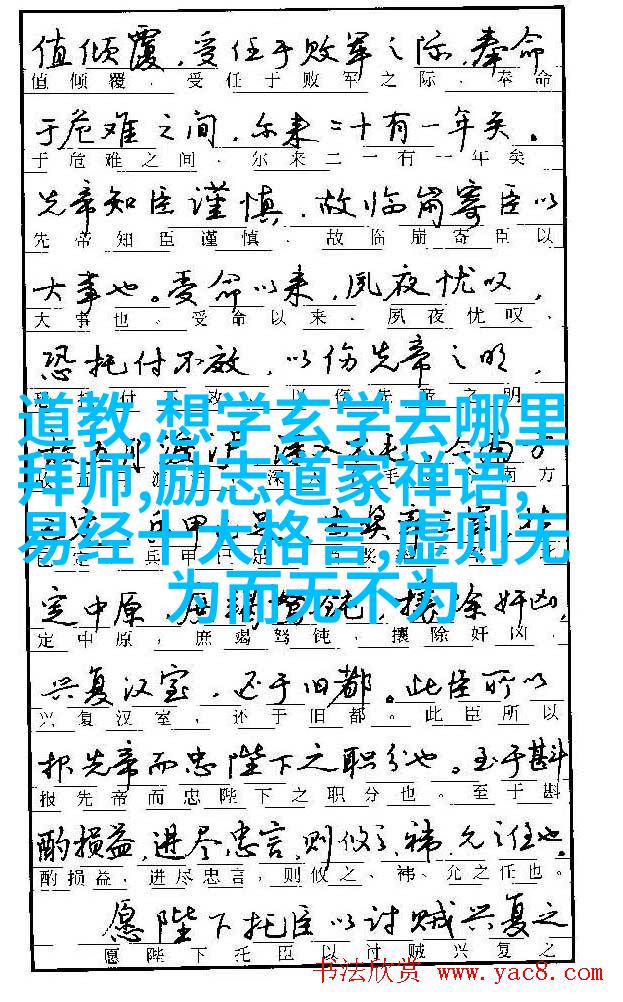 值倾覆,受任于败军之际,奉命
值倾覆,受任于败军之际、奉命
于危难之间,尔来二十有一年矣。
于危难之间,尔来二一有一年矣
先帝知臣谨慎,故临崩寄臣以
先帝知臣谨慎,故临崩寄臣以
大事也。受命以来,夙夜忧叹,
大事也。受命以来、夙夜忧叹、
恐托付不效,以伤先帝之明,
道教,想学玄学去哪里
拜师,励志道家禅语,
易经十大格言,虚则无
为而无不为
南方
兵甲
定中原,庶竭驽钝,攘除奸凶,
定中原,庶竭驽钝,攘除奸凶、
兴复汉室,还于旧都。此臣所以
兴复汉室,还于旧都。此臣所以
报先帝而忠陛下之职分也。至于斟
报先帝而忠陛下之职分也。至于斟
酌损益,进尽忠言,则攸之、祎、允之任也。
酌损益、进尽忠言,则攸之、祎、允之任也。
愿陛下托臣以讨贼兴复之
愿陛下托臣以讨贼兴复之
书法欣赏 www.yac8.com